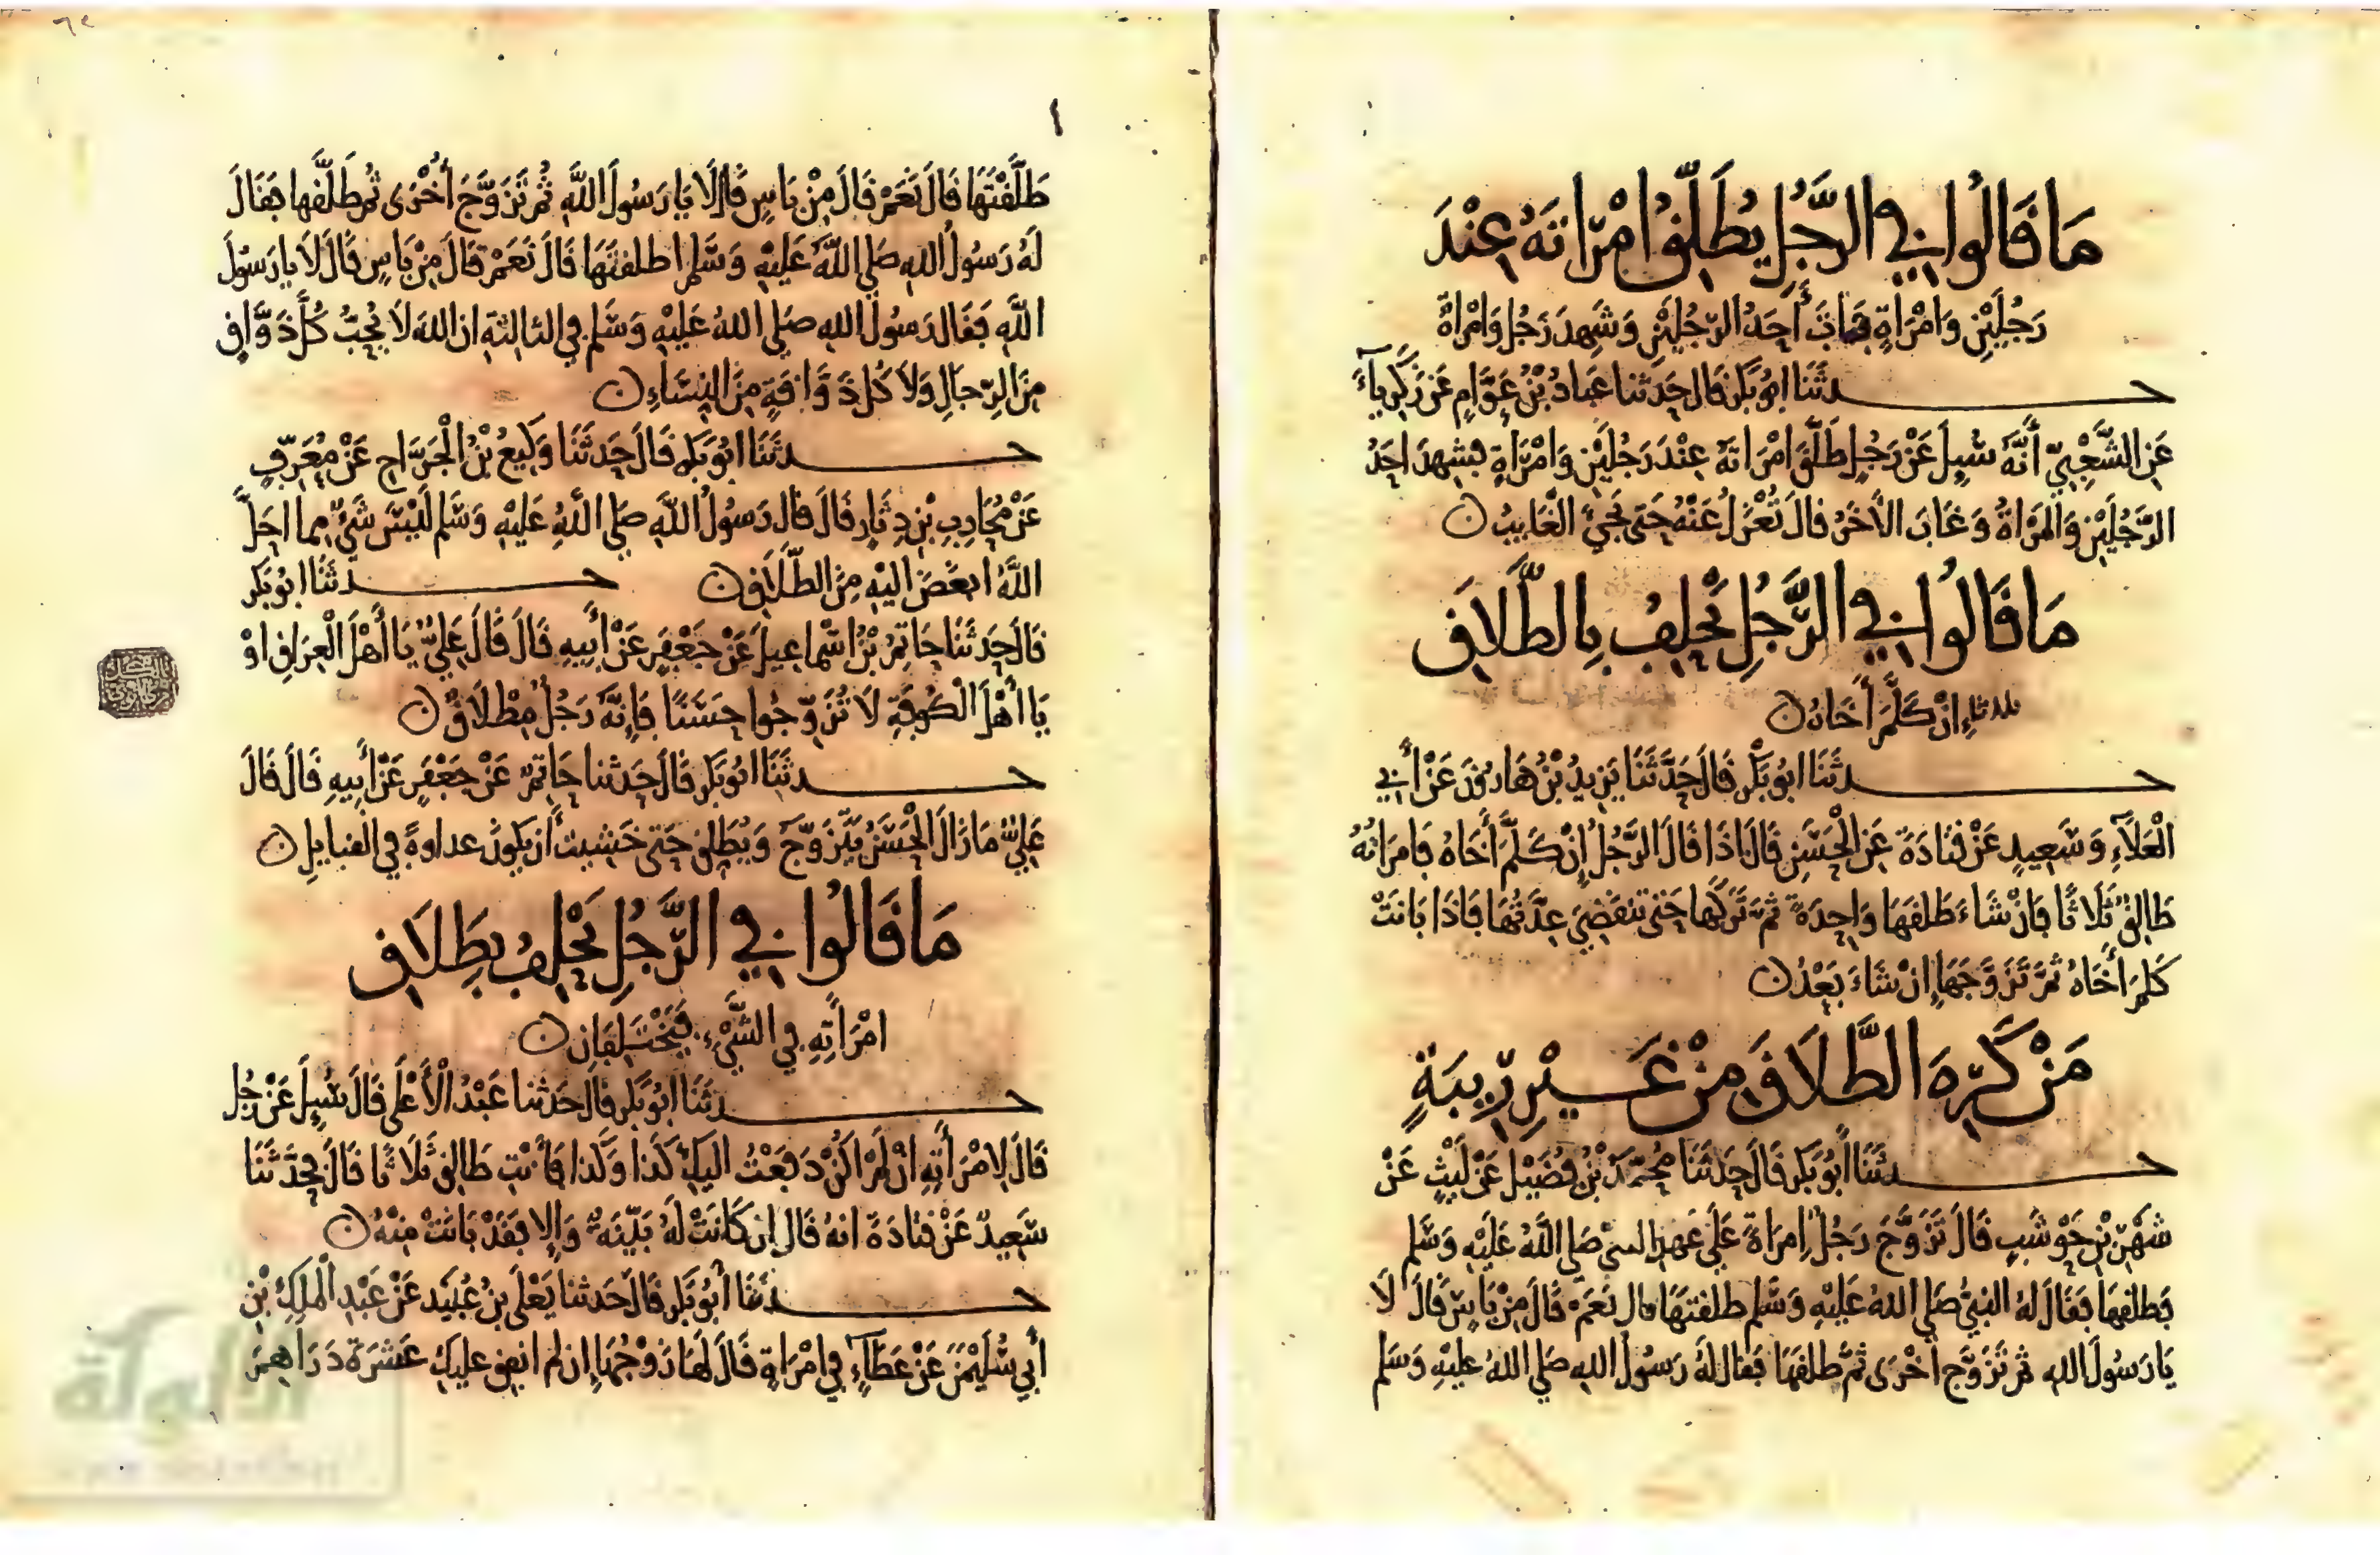 مَا قَالُوا فِي الرَّجُلِ يُطَلِّقُ امْرَاتَهُ عِنْدَ
رَجُلَيْنِ وَامْرَاةٍ فَمَاتَ أَحَدُ الرَّجُلَيْنِ وَشَهِدَ رَجُل وَامْرَاةٌ
حـــدثَنَا ابُو بَكْر قَالَ حَدثنا عَبَادُ بْنُ عَوَّامٍ عَن زَكَرِياءَ
عَنِ الشَّعْبِيِّ أَنَّهُ سُيِلَ عَنْ رَجُلٍ طَلَّقَ امْرَاتَهُ عِنْدَ رَجُلَيْنِ وَامْرَاةٍ فشهدَ احَدُ
الرَّجُلَيْنِ وَالمَرْاةُ وَغَابَ الأخَرُ قالَ تُعْزَلُ عَنْهُ حَتى يَجِيَ الْغَايِبُ
مَا قَالُوا فِي الرَّجُلِ يَحْلِفُ بِالطَّلَاقِ
ثلاثا إِنْ كَلَّمَ أَخَاهُ
حـــدثَنَا ابُو بَكْر قَالَ حَدَّثَنَا يَزِيدُ بْنُ هَارُونَ عَنْ أَبِي
الْعَلاءِ وَسَعِيدٍ عَنْ قَتَادَةَ عَنِ الْحَسَنِ قَالَ اذَا قَالَ الرَّجُلُ إِنْ كَلَّمَ أَخَاهُ فَامرَاتُهُ
طَالِقٌ ثَلَاثًا فَانْ شَاءَ طَلقَهَا وَاحِدَةً ثمَّ تَرَكَها حَتى تنقَضِيَ عِدَّتُهَا فَاذَا بَانَتْ
كَلمَ أَخَاهُ ثمَّ تَزَوَّجَهَا إِنْ شَاءَ بَعْدُ
مَنْ كَرِهَ الطَّلَاقَ مِنْ غَيْرِ رِيبَةٍ
حـــدثَنَا أَبُو بَكْر قَالَ حَدثَنَا مُحَمَّدُ بْنُ فُضَيْل عَنْ لَيْثٍ عَنْ
شَهْرِ بْنِ حَوْشَبٍ قَالَ تَزَوَّجَ رَجُلٌ امرَاةً عَلَى عَهدِ النبي صَلى اللَّهُ عَلَيْهِ وَسَّلم
فَطلقَهَا فَقَالَ لَهُ النبيُّ صَلى اللهُ عَلَيْهِ وَسَّلم طَلقتَهَا قال نَعَمْ قَالَ مِنْ بَاسٍ قَالَ لَا
يَا رَسُولَ الله ثم تَزَوَّجَ أخْرَى ثمَّ طَلقَهَا فَقَالَ لَهُ رَسُولُ الله صَلى اللهُ عَليهِ وَسَلم
طَلَّقْتَهَا قَالَ نَعَمْ قَالَ مِنْ بَاسٍ قَالَ لَا يَا رَسُولَ اللَّهِ ثُمَّ تَزَوَّجَ أُخْرَى ثُمَّ طَلَّقها فَقَالَ
لَهُ رَسُولُ اللهِ صَلى اللَّهُ عَلَيْهِ وَسَّلم اطلقتَهَا قَالَ نَعَمْ قَالَ مِنْ بَاسٍ قَالَ لَا يا رَسُولَ
اللَّهِ فَقَال رَسُولُ اللهِ صَلى اللهُ عَلَيْهِ وَسَّلم في الثالثةِ ان اللهَ لَا يُحِبُّ كُلَّ ذَوَّاقٍ
مِنَ الرِّجَالِ وَلَا كُلَّ ذَوَّاقَةٍ مِنَ النِسَاءِ
حـــدثَنَا ابُو بَكر قَالَ حَدثَنَا وَكِيعُ بْنُ الْجَرَّاحِ عَنْ مُعَرِّفٍ
عَنْ مُحَارِبِ بْنِ دِثَارٍ قَالَ قَالَ رَسُولُ اللَّهِ صَلى اللهُ عَلَيْهِ وَسَّلم لَيْسَ شَيْءٌ مِما احَلَّ
اللَّهُ ابغَضَ الَيْهِ مِنَ الطَّلَاقِ حـــدثَنَا ابُو بَكر
قَالَ حَدثَنَا حَاتِمُ بْنُ اسْمَاعِيلَ عَنْ جَعْفَرٍ عَنْ أَبِيهِ قَالَ قَالَ عَلِيٌّ يَا أَهْلَ الْعِرَاقِ اوْ
يَا أَهْلَ الْكُوفَةِ لَا تُزَوِّجُوا حَسَنًا فَإِنَّهُ رَجُلٌ مِطْلَاقٌ
حـــدثَنَا ابُو بَكر قَالَ حَدثنا حَاتِمٌ عَنْ جَعْفَرٍ عَنْ أَبِيهِ قَالَ قَالَ
عَلِيٌّ مَا زَالَ الْحَسَنُ يَتَزَوَّجُ وَيُطَلِق حَتى خَشِيتُ أَنْ يَكُونَ عداوةً في القبايلِ
مَا قَالُوا فِي الرَّجُلِ يَحْلِفُ بِطَلَاقِ
امْرَأَتِهِ فِي الشَّيْءِ فَيَخْتَلِفَانِ
حـــدثَنَا ابُو بَكر قَالَ حَدثنا عَبْدُ الْأَعْلَى قَالَ سُيِلَ عَنْ رجُل
قَالَ لِامْرَأَتِهِ انْ لَمْ اكُنْ دَفَعْتُ اليكِ كَذَا وَكَذا فَأَنْتِ طَالِق ثَلَاثًا قَالَ فحَدَّثَنَا
سَعِيدٌ عَنْ قتادَةَ انهُ قَالَ إِن كَانَتْ لَهُ بَيِّنَةٌ وَإِلا فَقَدْ بَانَتْ مِنْهُ
حـــدثَنَا أَبُو بَكر قَالَ حَدثنا يَعْلَى بنُ عُبَيد عَنْ عَبْدِ الْمَلِكِ بْنِ
أَبِي سُلَيْمَنَ عَنْ عَطَاءٍ فِي امْرَاةٍ قَالَ لَهَا زَوْجُهَا إِن لم انفِق عليكِ عَشَرَةَ دَرَاهِمَ
الألوكة